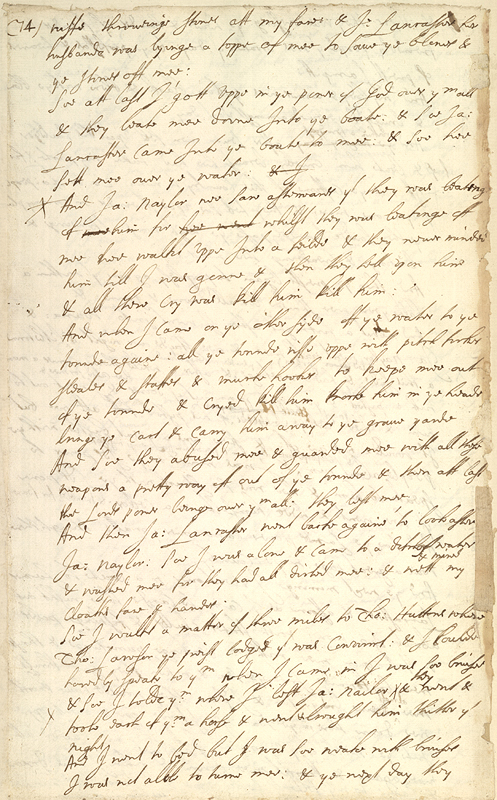 (74) wiffe throweinge stones att my face: & Ja: Lancaster her
husbande was lyinge a toppe of mee to save ye blowes &
ye stones off mee:
Soe att last I gott uppe in ye power of God over ym all
& they beate mee doune Into ye boate: & soe Ja:
Lancaster came Into ye boate to mee: & soe hee
sett mee over ye water: & I
And Ja: Naylor wee saw afterwards yt they was beating
of mee him for hee went whilst they was beatinge off
mee hee walkt uppe Into a feilde & they never minded
him till I was gonne & then they fell upon him
& all there cry was kill him kill him:
And when I came on ye other syde off ye water to ye
tounde againe: all ye tounde risse uppe with pitch forkes
fleales & staffes & muche hookes to keepe mee out
of ye tounde & cryed kill him knocke him in ye heade
bringe ye cart & carry him away to ye grave yarde
And soe they abused mee & guarded mee with all those
weapons a pretty way off out of ye tounde & then att last
the Lords power beinge over ym all: they left mee
And then Ja: Lancaster went backe againe to looke after
Ja: Naylor: soe I was alone & came to a ditch of water
& washed mee for they had all dirted mee: & wett my
cloaths face & handes:
Soe I walkt a matter of three miles to Tho: Huttons where
Tho: Lawson ye preist lodged yt was convinct: & I coulde
hardely speake to ym when I came in I was soe bruised
& soe I tolde ym where I left Ja: Nailor & they went &
tooke each of ym a horse & went & brought him thither yt
night
And I went to bed but I was soe weake with bruises
I was not able to turne mee: & ye next day they